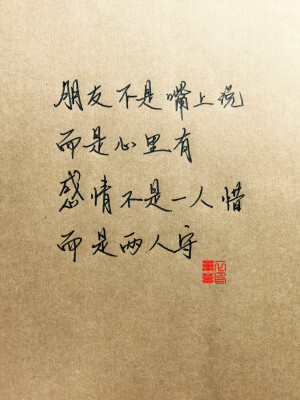 朋友不是嘴上说
而是心里有
感情不是一人惜
而是两人守